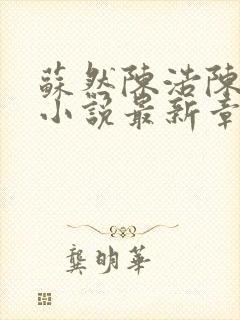 蘇然陳浩陳
小說最新章
龔明華